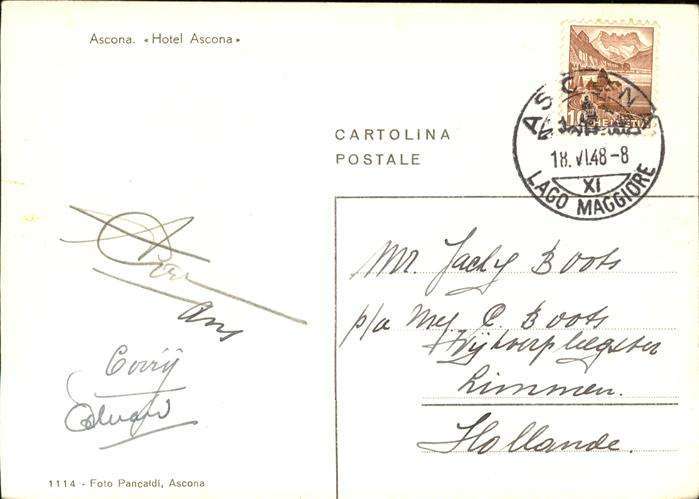 Ascona. «Hotel Ascona»
10
HELVETIA
ASCONA
18.VI.48-8
XI
LAGO MAGGIORE
CARTOLINA
POSTALE
Mr. Jacky Boots
p/a Mej C. Boots
Limmen.
Hollande.
Ans
Corrij
Eduard
1114 - Foto Pancaldi, Ascona